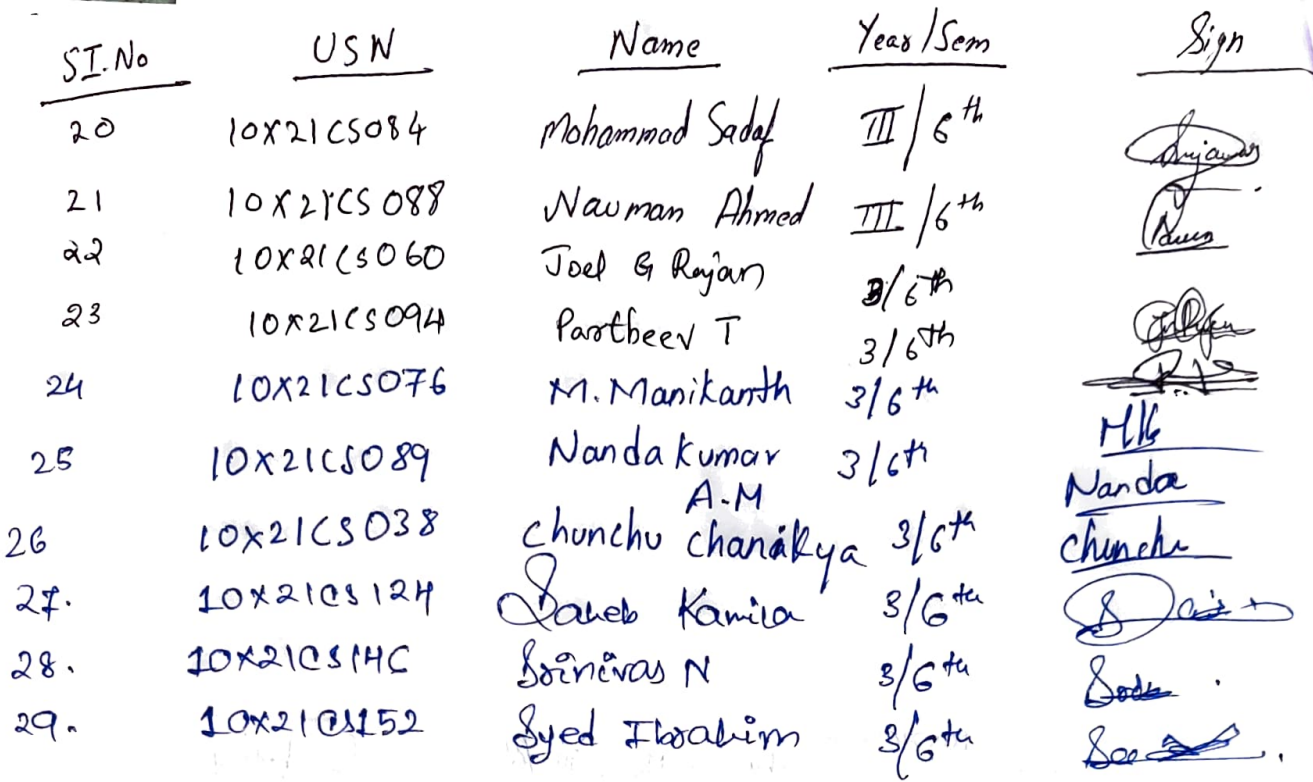 SI.No USN Name Year/Sem Sign
20 10X21CS084 Mohammad Sadaf III/6th
21 10X21CS088 Nauman Ahmed III/6th
22 10X21CS060 Joel G Rajan 3/6th
23 10X21CS094 Partheev T 3/6th
24 10X21CS076 M. Manikanth 3/6th
25 10X21CS089 Nanda kumar A.M 3/6th Nanda
26 10X21CS038 Chunchu chanakya 3/6th Chunchu
27. 10X21CS124 Saheb Kamila 3/6th
28. 10X21CS146 Srinivas N 3/6th
29. 10X21CS152 Syed Ibrahim 3/6th